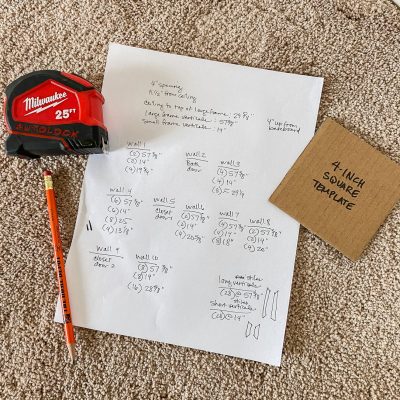 Milwaukee
25FT
AUTOLOCK
4" spacing
11 1/2" from ceiling
ceiling to top of large frame: 29 7/8"
large frame verticals: 57 3/8"
small frame verticals: 14"
4" up from baseboard
4-INCH
SQUARE
TEMPLATE
wall 1
(2) 57 3/8"
(2) 14"
(4) 19 3/8"
wall 2
Bath
door
wall 3
(4) 57 3/8"
(4) 14"
wall 4
(6) 57 3/8"
(6) 14"
(8) 25
(4) 13 7/8"
wall 5
closet
door 1
wall 6
(2) 57 3/8"
(2) 14"
wall 7
(4) 57 3/8"
(4) 14"
wall 8
(2) 57 3/8"
(2) 14"
(4) 20"
wall 9
closet
door 2
wall 10
(8) 57 3/8"
(8) 14"
(16) 28 3/8"
long verticals
(28) @ 57 3/8"
short verticals
(28) @ 14"